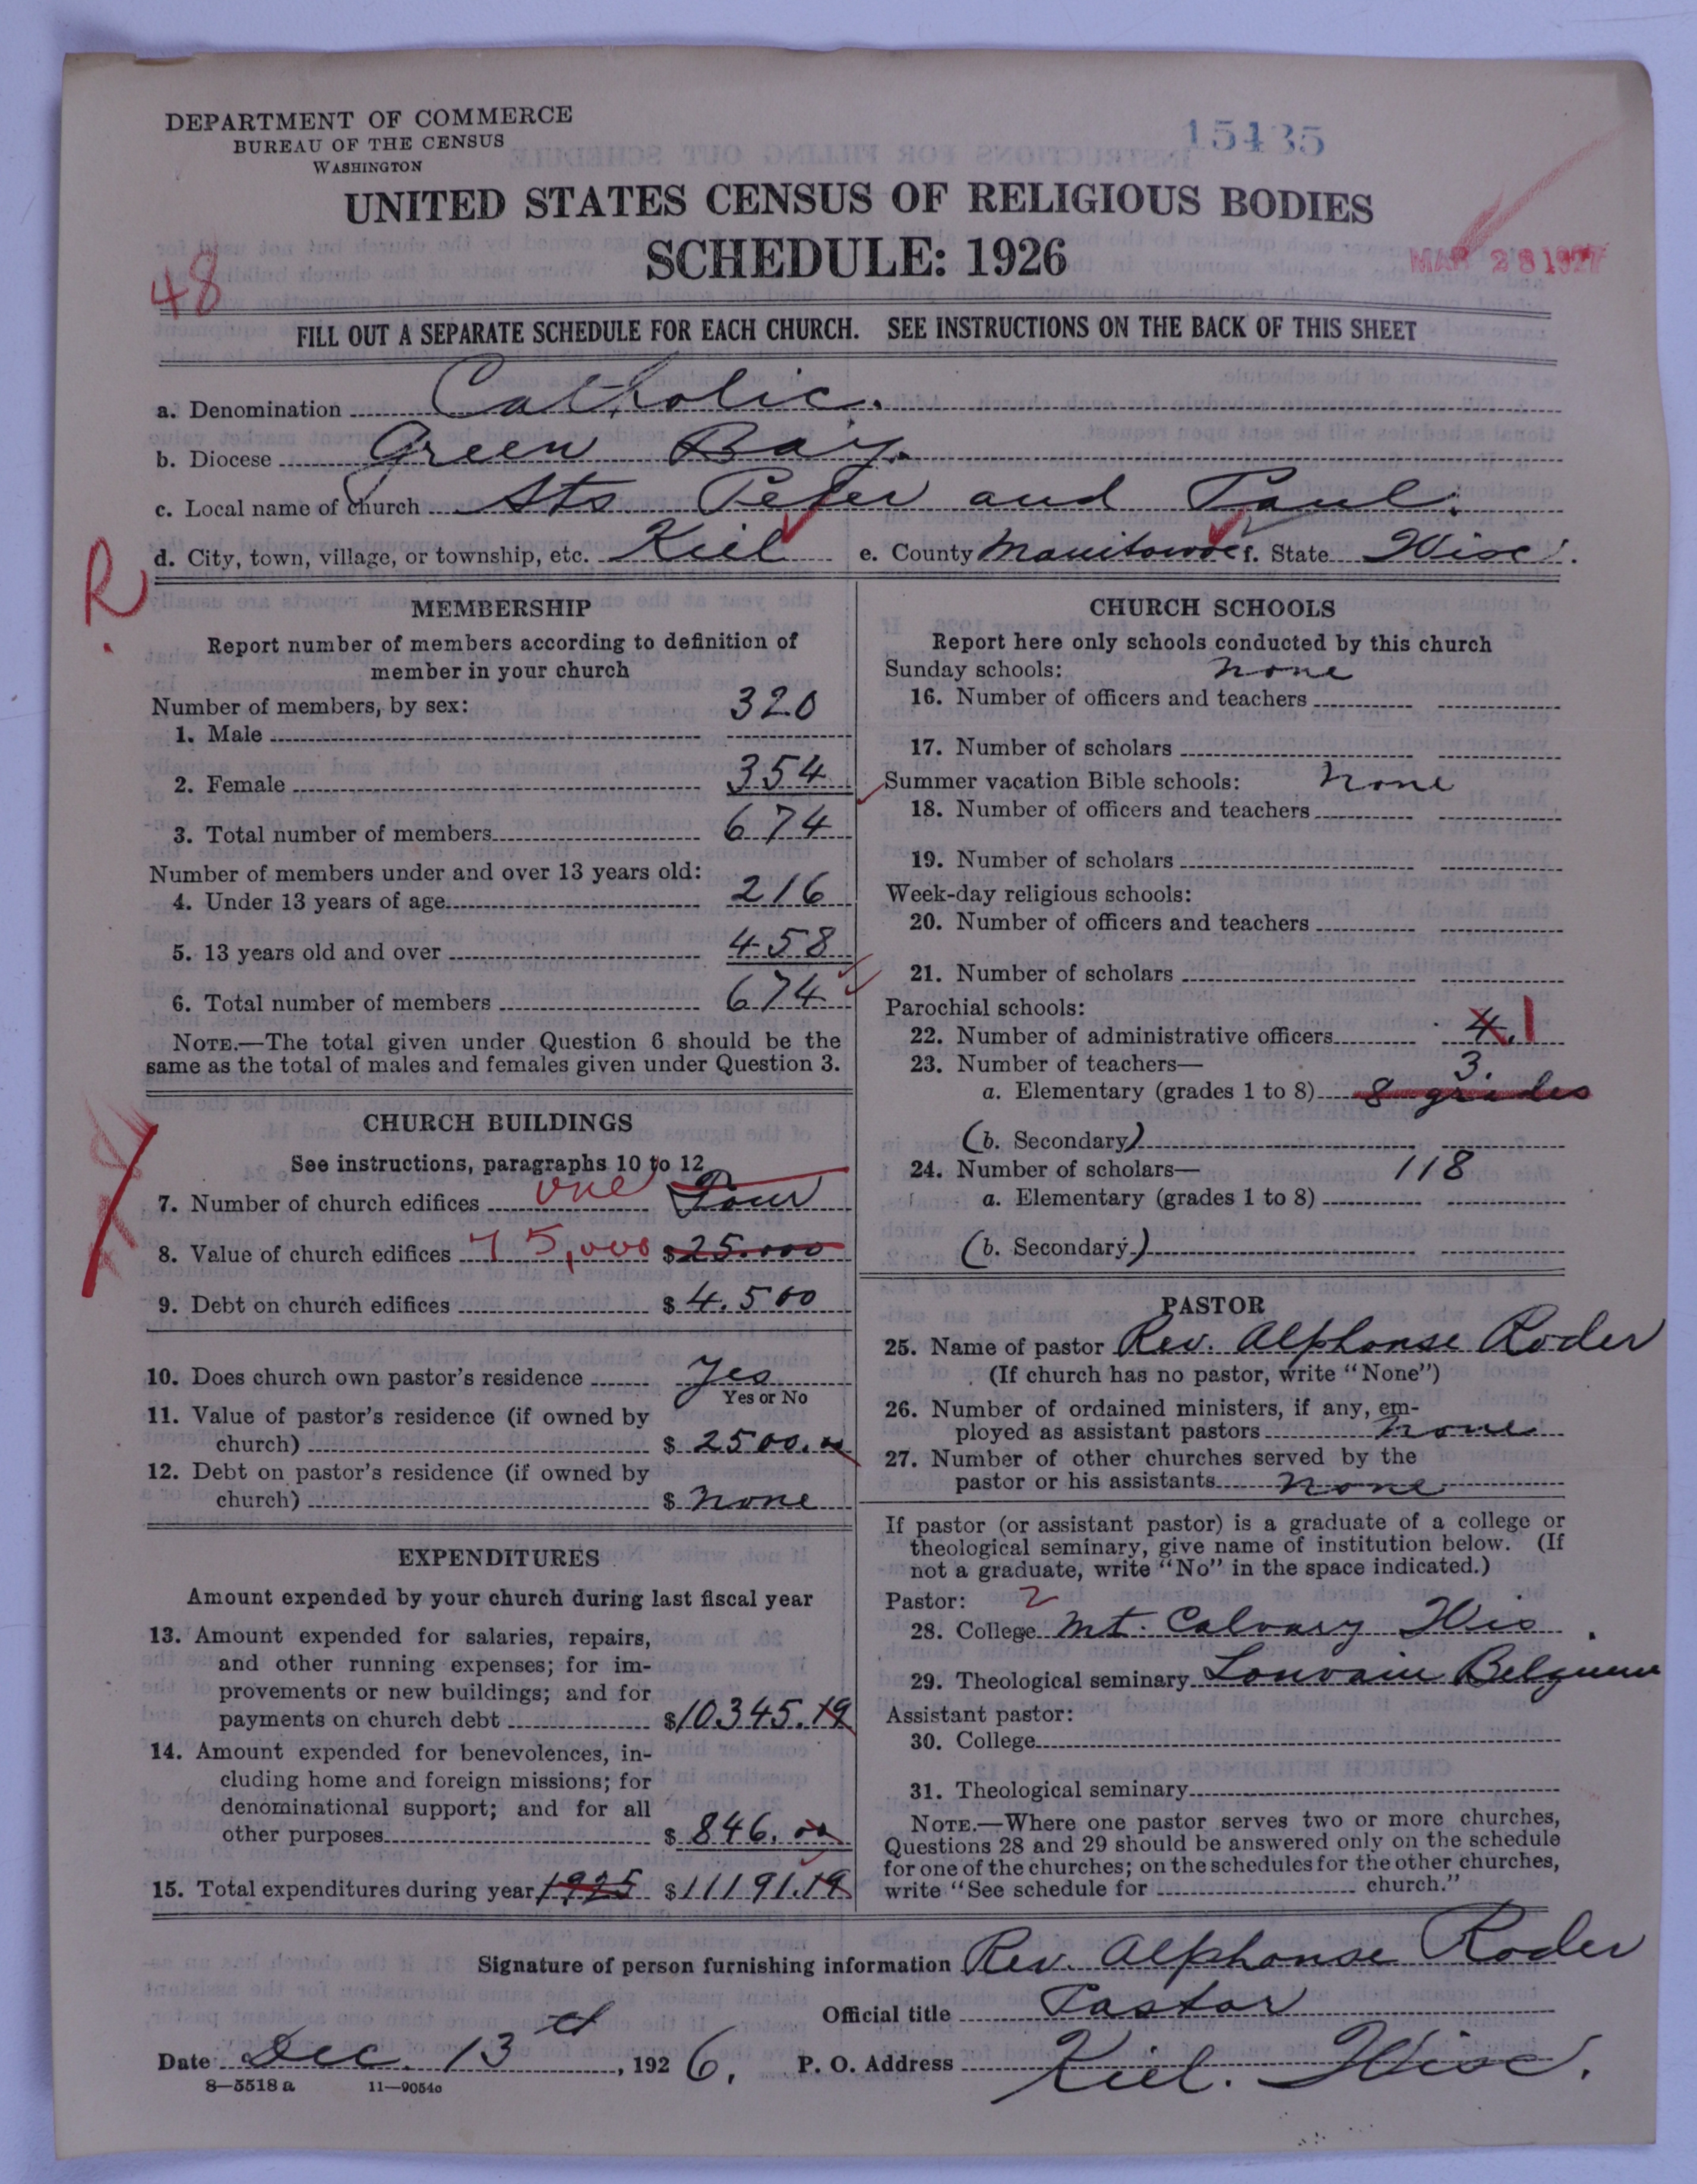 DEPARTMENT OF COMMERCE
BUREAU OF THE CENSUS
WASHINGTON
15435
UNITED STATES CENSUS OF RELIGIOUS BODIES
SCHEDULE: 1926
MAR 28 1927
48
FILL OUT A SEPARATE SCHEDULE FOR EACH CHURCH. SEE INSTRUCTIONS ON THE BACK OF THIS SHEET
a. Denomination Catholic.
b. Diocese Green Bay.
c. Local name of church Sts Peter and Paul.
d. City, town, village, or township, etc. Kiel e. County Manitowoc f. State Wisc.
R.
MEMBERSHIP
Report number of members according to definition of
member in your church
Number of members, by sex:
1. Male 320
2. Female 354
3. Total number of members 674
Number of members under and over 13 years old:
4. Under 13 years of age 216
5. 13 years old and over 458
6. Total number of members 674
NOTE.—The total given under Question 6 should be the
same as the total of males and females given under Question 3.
CHURCH BUILDINGS
See instructions, paragraphs 10 to 12
7. Number of church edifices one Four
8. Value of church edifices 75,000 $25.000
9. Debt on church edifices $ 4.500
10. Does church own pastor's residence Yes
Yes or No
11. Value of pastor's residence (if owned by
church) $ 2500.00
12. Debt on pastor's residence (if owned by
church) $ none
EXPENDITURES
Amount expended by your church during last fiscal year
13. Amount expended for salaries, repairs,
and other running expenses; for im-
provements or new buildings; and for
payments on church debt $10.345.19
14. Amount expended for benevolences, in-
cluding home and foreign missions; for
denominational support; and for all
other purposes $ 846.00
15. Total expenditures during year 1925 $11191.19
CHURCH SCHOOLS
Report here only schools conducted by this church
Sunday schools: none
16. Number of officers and teachers
17. Number of scholars
Summer vacation Bible schools: none
18. Number of officers and teachers
19. Number of scholars
Week-day religious schools:
20. Number of officers and teachers
21. Number of scholars
Parochial schools:
22. Number of administrative officers 4. 1
23. Number of teachers— 3.
a. Elementary (grades 1 to 8) 8 grades
(b. Secondary)
24. Number of scholars— 118
a. Elementary (grades 1 to 8)
(b. Secondary)
PASTOR
25. Name of pastor Rev. Alphonse Roder
(If church has no pastor, write "None")
26. Number of ordained ministers, if any, em-
ployed as assistant pastors none
27. Number of other churches served by the
pastor or his assistants none
If pastor (or assistant pastor) is a graduate of a college or
theological seminary, give name of institution below. (If
not a graduate, write "No" in the space indicated.)
Pastor: 2
28. College Mt. Calvary Wis.
29. Theological seminary Louvain Belgium
Assistant pastor:
30. College
31. Theological seminary
NOTE.—Where one pastor serves two or more churches,
Questions 28 and 29 should be answered only on the schedule
for one of the churches; on the schedules for the other churches,
write "See schedule for church."
Signature of person furnishing information Rev. Alphonse Roder
Official title Pastor
Date Dec. 13th, 1926. P. O. Address Kiel. Wisc.
8—5518 a 11—9054a